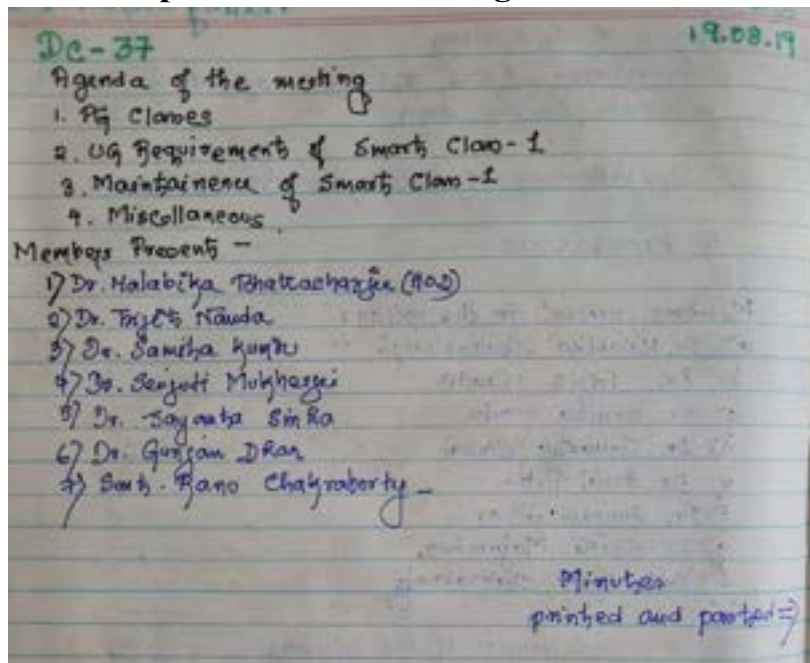 DC-37
19.08.19
Agenda of the meeting
1. PG Classes
2. UG Requirement of Smart Class-1
3. Maintainence of Smart Class-1
4. Miscellaneous
Members Present -
1) Dr. Malabika Bhattacharjee (HOD)
2) Dr. Nanda
3) Dr. Samita Kundu
4) Dr. Senjuti Mukherjee
5) Dr. Sayanta Sinha
6) Dr. Gunjan Dhar
7) Smt. Rano Chakraborty -
Minutes
printed and pasted ⇒